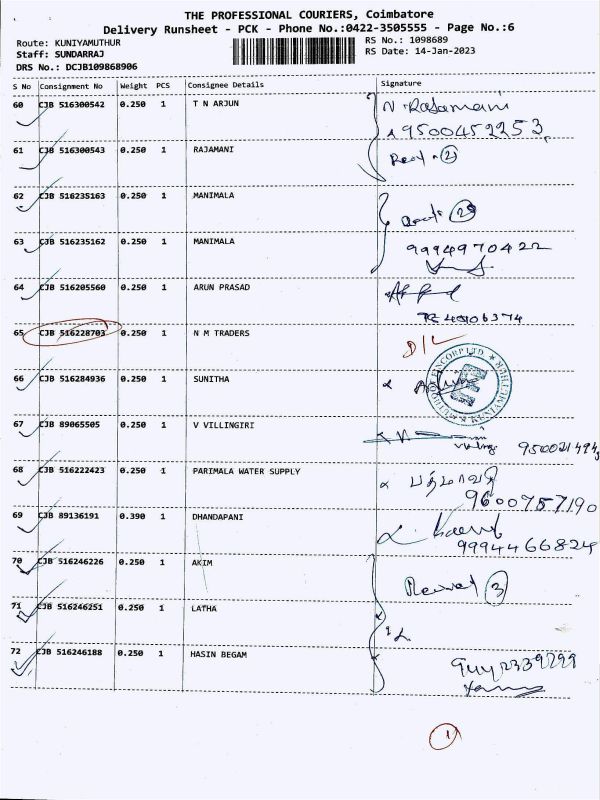 THE PROFESSIONAL COURIERS, Coimbatore
Delivery Runsheet - PCK - Phone No.:0422-3505555 - Page No.:6
Route: KUNIYAMUTHUR
Staff: SUNDARRAJ
DRS No.: DCJB109868906
RS No.: 1098689
RS Date: 14-Jan-2023
S No Consignment No Weight PCS Consignee Details Signature
60 CJB 516300542 0.250 1 T N ARJUN N. Rajamani
9500452253
61 CJB 516300543 0.250 1 RAJAMANI
2
62 CJB 516235163 0.250 1 MANIMALA
63 CJB 516235162 0.250 1 MANIMALA 9994970422
64 CJB 516205560 0.250 1 ARUN PRASAD
65 CJB 516228703 0.250 1 N M TRADERS D/L
66 CJB 516284936 0.250 1 SUNITHA
67 CJB 89065505 0.250 1 V VILLINGIRI
68 CJB 516222423 0.250 1 PARIMALA WATER SUPPLY பத்மாவதி
9600757190
69 CJB 89136191 0.390 1 DHANDAPANI
9994466824
70 CJB 516246226 0.250 1 AKIM
3
71 CJB 516246251 0.250 1 LATHA
72 CJB 516246188 0.250 1 HASIN BEGAM
1